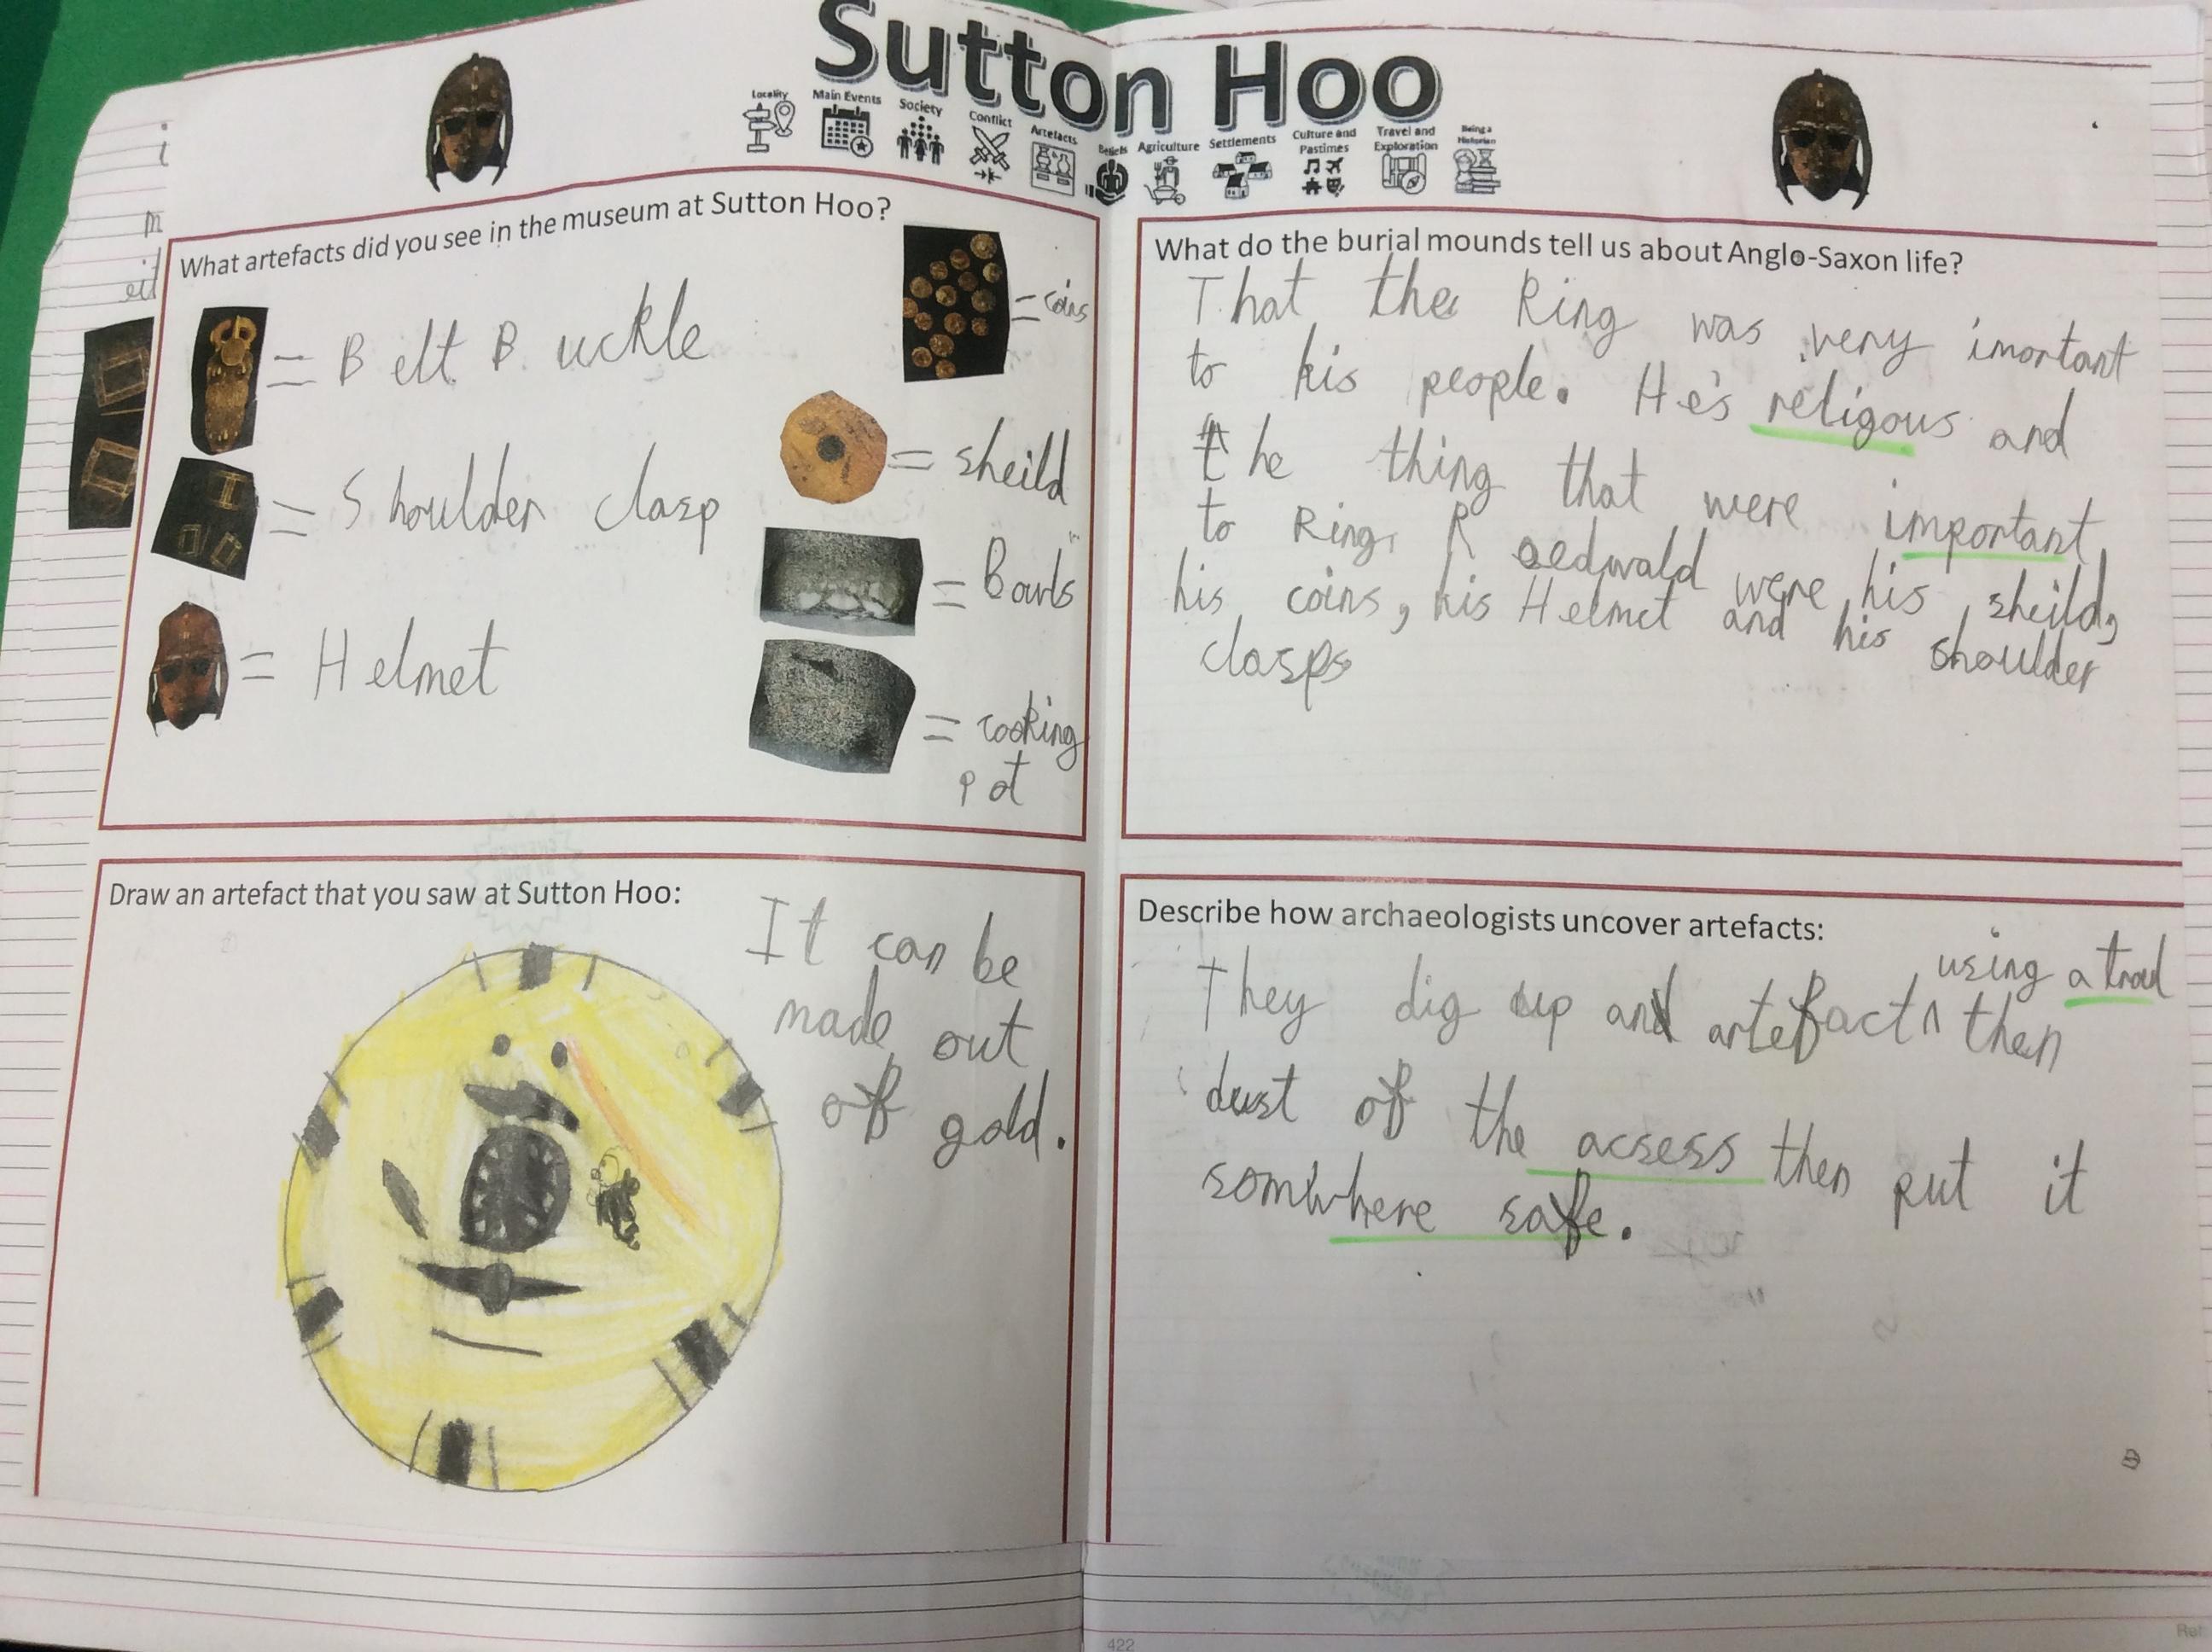 Sutton Hoo
Locality
Main Events
Society
Conflict
Artefacts
Beliefs
Agriculture
Settlements
Culture and
Pastimes
Travel and
Exploration
Being a
Historian
What artefacts did you see in the museum at Sutton Hoo?
= Belt Buckle
= Shoulder clasp
= Helmet
= coins
= sheild
= Bowls
= cooking
pot
What do the burial mounds tell us about Anglo-Saxon life?
That the King was very imortant
to his people. He's religous and
the thing that were important
to King Raedwald were his sheild,
his coins, his Helmet and his shoulder
clasps
Draw an artefact that you saw at Sutton Hoo:
It can be
made out
of gold.
Describe how archaeologists uncover artefacts:
using a
They dig up an artefact ^ then
dust of the acsess then put it
somwhere safe.
422